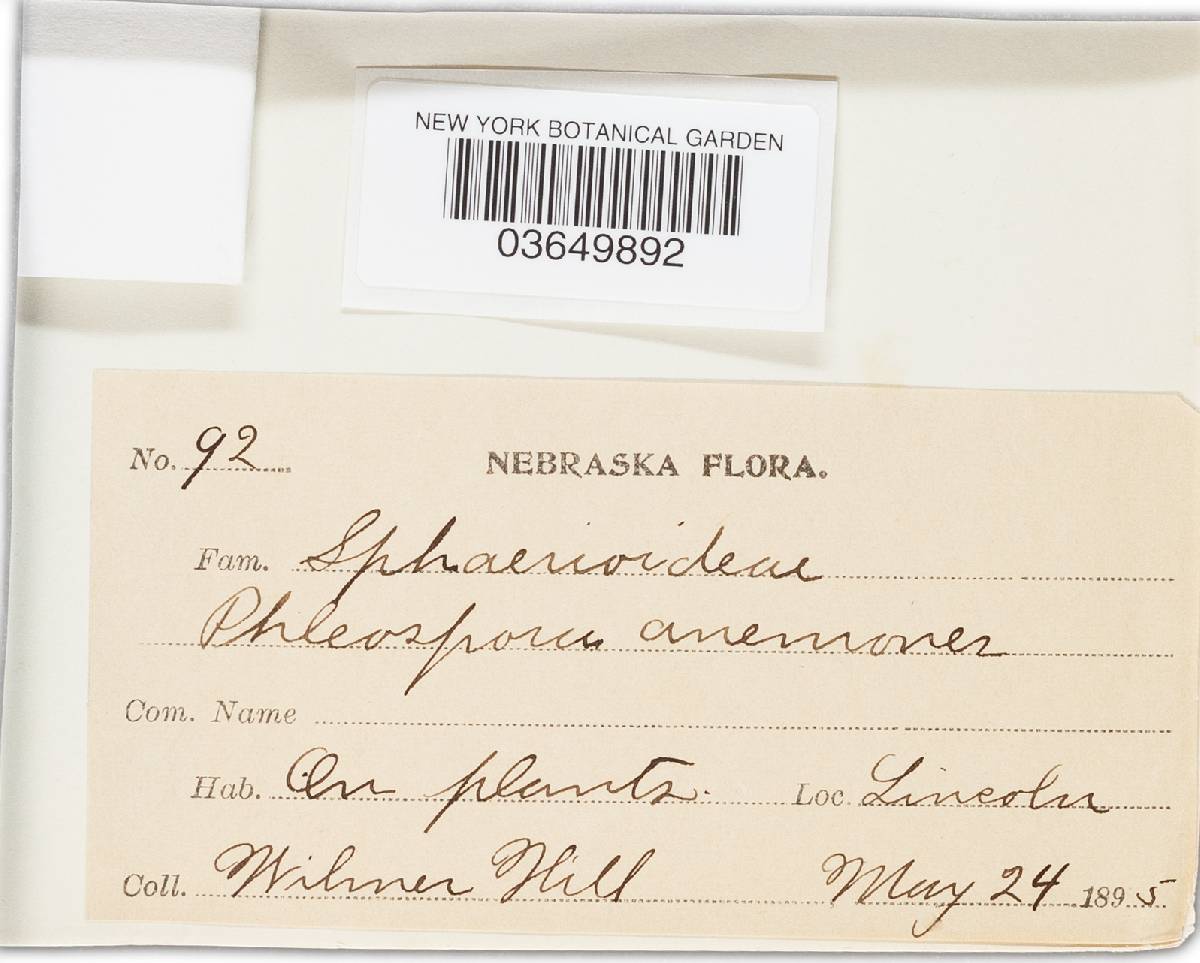 NEW YORK BOTANICAL GARDEN
03649892
No. 92 NEBRASKA FLORA.
Fam. Sphaerioideae
Phleospora anemones
Com. Name
Hab. On plants. Loc. Lincoln
Coll. Wilmer Hill May 24 1895